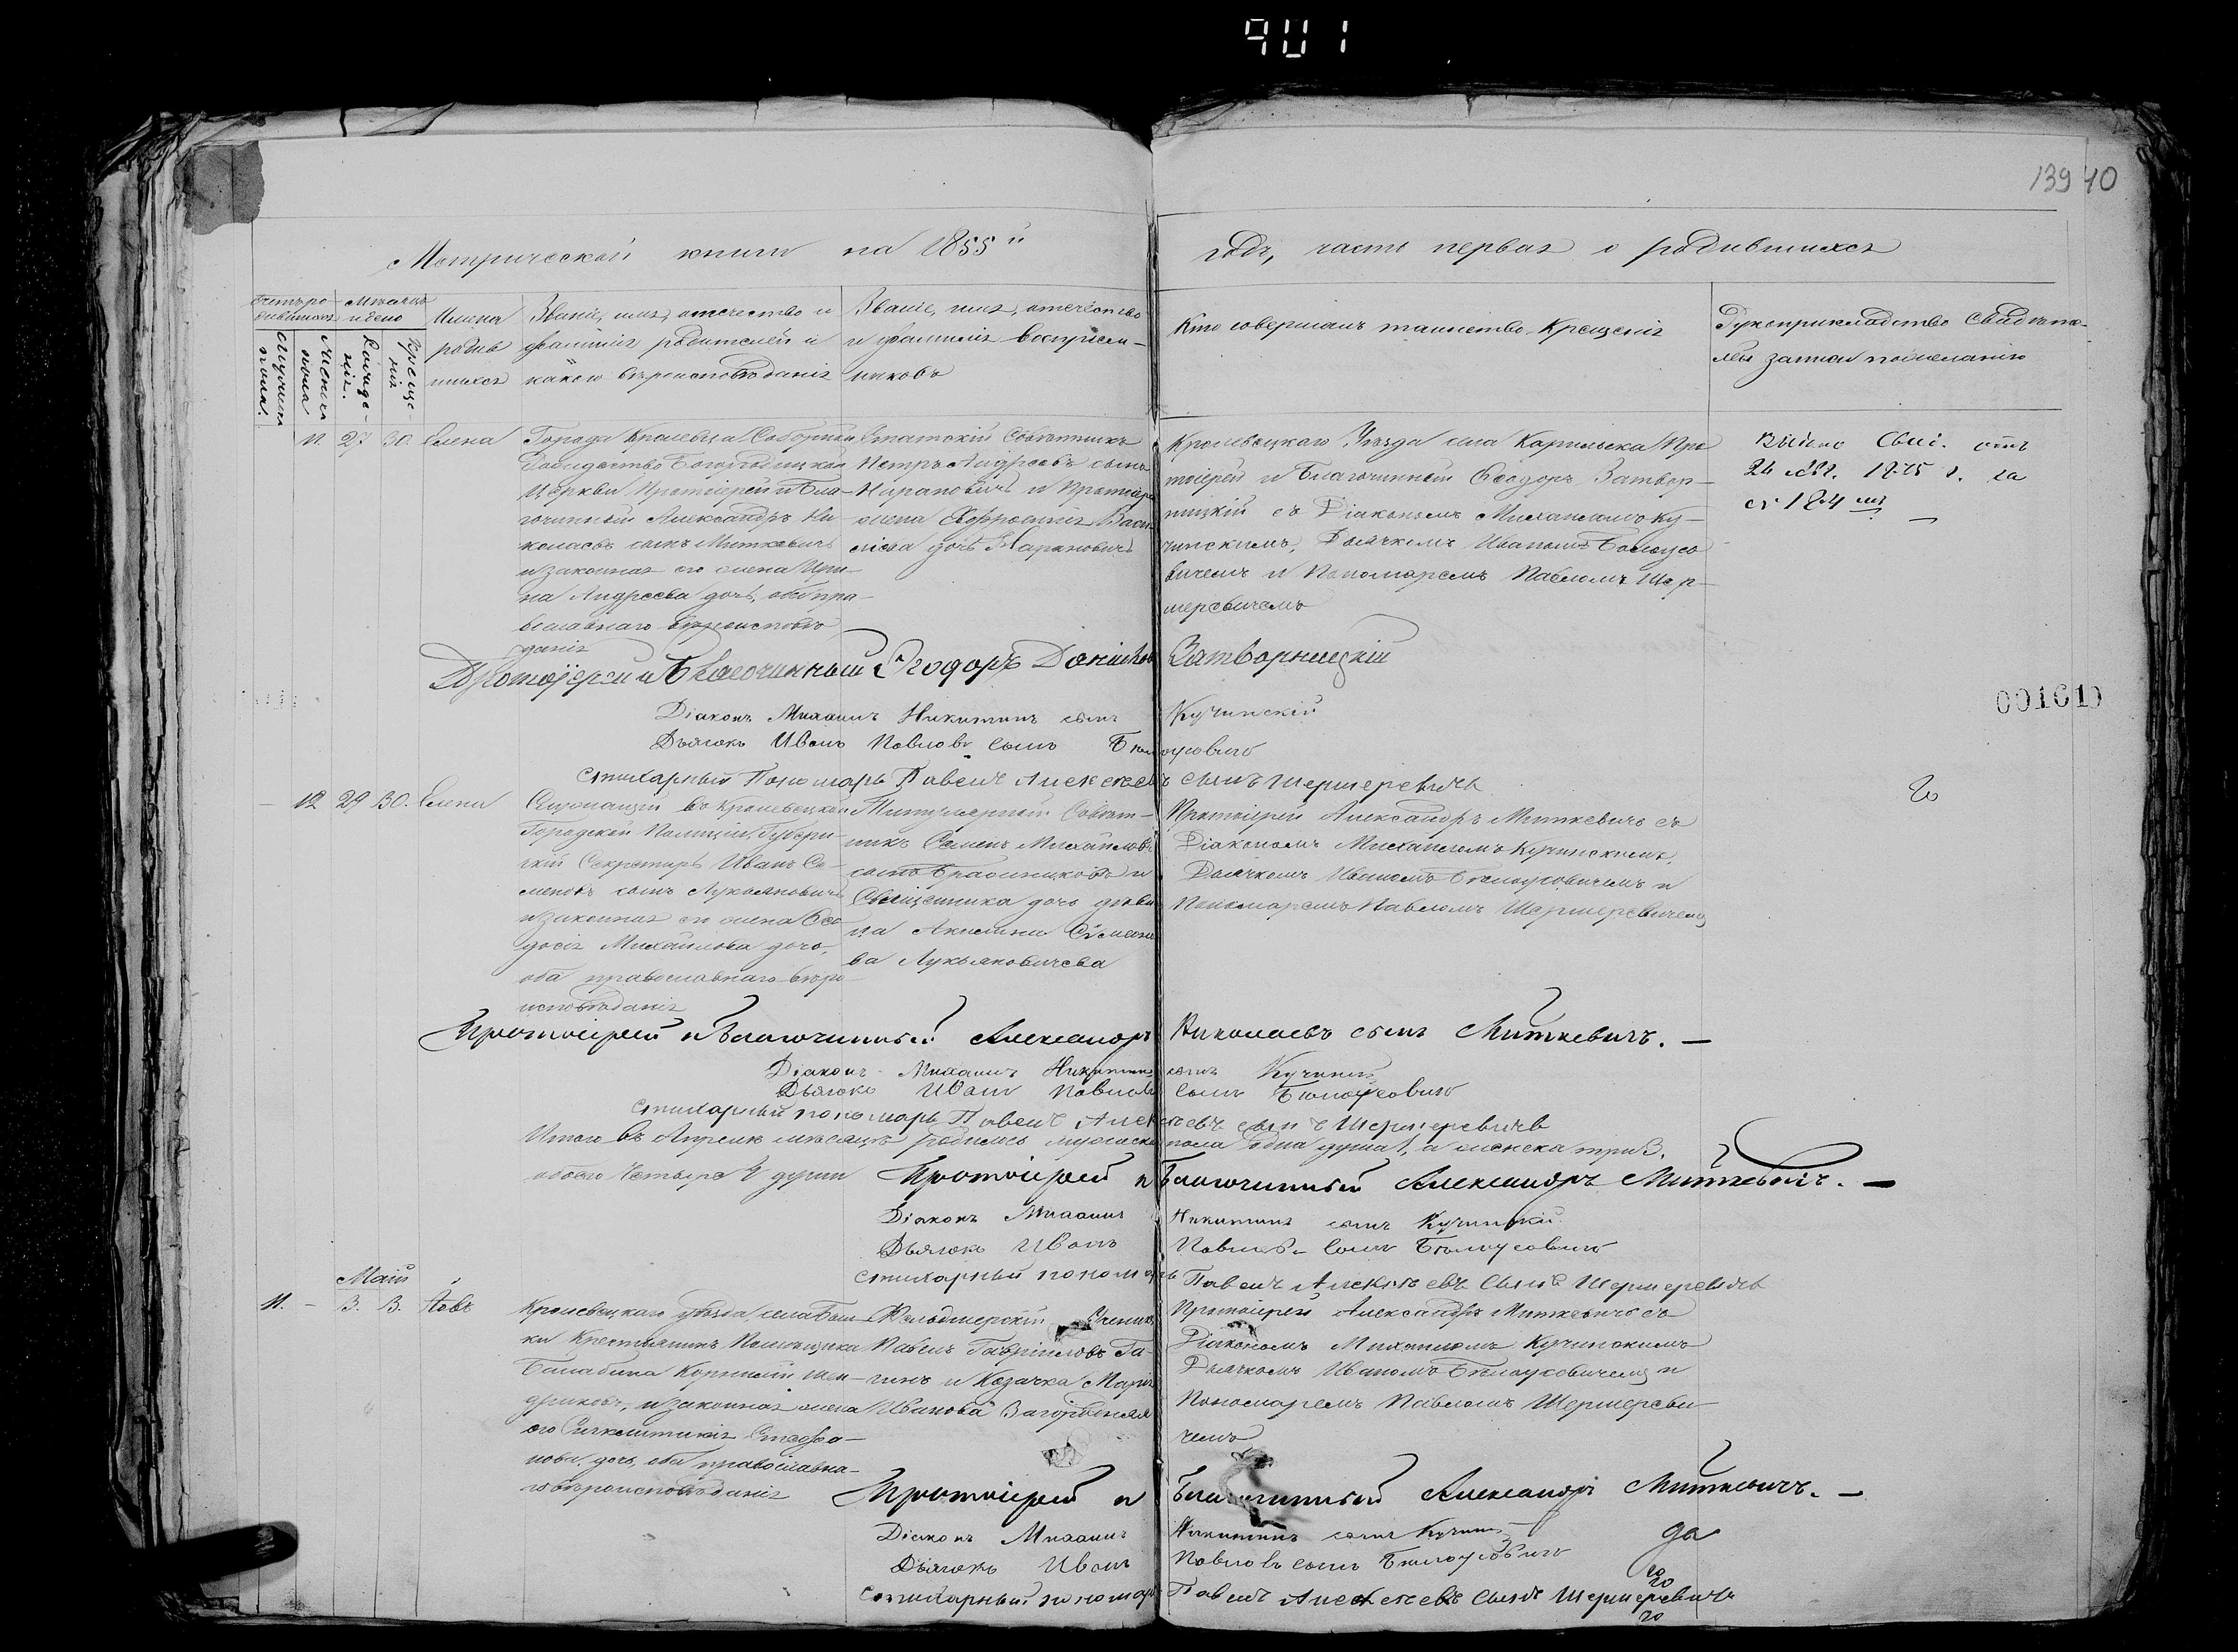 901
139 40
Метрической книги на 1855й
годъ, часть первая о родившихся
Счетъ ро-
дившихся
Мужеска
пола.
Женска
пола
Мѣсяцъ
и день
Рожде-
нія.
Креще-
нія
Имена
родив
шихся
Званіе, имя, отчество и
фамилія родителей и
какого вѣроисповѣданія
Званіе, имя, отчество
и фамилія воспріем-
никовъ
Кто совершалъ таинство Крещенія
Рукоприкладство свидѣте-
лей записи по желанію
11. 27 30. Елена
Города Кролевца Соборной
Рождество Богородицкой
Церкви Протоіерей и Бла-
гочинный Александръ Ни-
колаевъ сынъ Миткевичъ
и законная его жена Ири-
на Андреева дочь, оба пра-
вославнаго вѣроисповѣ
данія
Статскій Совѣтникъ
Петръ Андреевъ сынъ
Нарановичъ и Протоіерея
жена Евфросинія Васи
ліева дочь
Кролевецкаго Уѣзда села Карыльска Про
тоіерей и Благочинный Ѳеодоръ Затвор-
ницкій съ Діакономъ Михаиломъ Ку-
чинскимъ, Дьячкомъ Иваномъ Бѣлоусо
вичемъ и Пономаремъ Павломъ Шер-
шеревичемъ
отъ
за
184
Протоіерей и Благочинный Ѳеодоръ Затворницкій
Діаконъ Михаилъ Никитинъ сынъ Кучинскій
Дьячокъ Иванъ Павловъ сынъ Бѣлоусовичъ
Стихарный Пономарь Павелъ Алексѣевъ сынъ Шершеревичъ
001610
12 29 30. Елена
Служащій въ Кролевецкой
Городской Полиціи, Губерн-
скій Секретарь Иванъ Се-
меновъ сынъ Лукьяновичъ
и законная его жена Ѳео
досія Михайлова дочь,
оба православнаго вѣро
исповѣданія
Титулярный Совѣт-
никъ Семенъ Михайловъ
сынъ и
Священника дочь дѣви
ца Акилина Симеоно
ва Лукьяновичева
Протоіерей Александръ Миткевичъ съ
Діакономъ Михаиломъ Кучинскимъ,
Дьячкомъ Иваномъ Бѣлоусовичемъ и
Пономаремъ Павломъ Шершеревичемъ
Протоіерей и Благочинный Александръ Николаевъ сынъ Миткевичъ. —
Діаконъ Михаилъ Никитинъ сынъ Кучинскій
Дьячокъ Иванъ Павловъ сынъ Бѣлоусовичъ
Стихарный пономарь Павелъ Алексѣевъ сынъ Шершеревичъ
Итого въ Апрелѣ мѣсяцѣ родилось мужеска пола одна душа 1, а женска три 3.
обоего четыре 4 души Протоіерей и Благочинный Александръ Миткевичъ. —
Діаконъ Михаилъ Никитинъ сынъ Кучинскій
Дьячокъ Иванъ Павловъ сынъ Бѣлоусовичъ
Стихарный пономарь Павелъ Алексѣевъ сынъ Шершеревичъ
Май
11. — 3. 3. Іовъ
Кролевецкаго уѣзда, села
ки Крестьянинъ Помѣщика
Балабина Корнилій Шен-
дриковъ, и законная жена
его Синклитикія Стефа-
нова дочь, оба православна-
го вѣроисповѣданія
Фельдшерскій Ученикъ
Павелъ Гавріиловъ Га-
гинъ и Козачка Марія
Иванова
Протоіерей Александръ Миткевичъ съ
Діакономъ Михаиломъ Кучинскимъ
Дьячкомъ Иваномъ Бѣлоусовичемъ и
Пономаремъ Павломъ Шершереви-
чемъ
Протоіерей и Благочинный Александръ Миткевичъ. —
Діаконъ Михаилъ Никитинъ сынъ Кучинскій
Дьячокъ Иванъ Павловъ сынъ Бѣлоусовичъ
Стихарный пономарь Павелъ Алексѣевъ сынъ Шершеревичъ